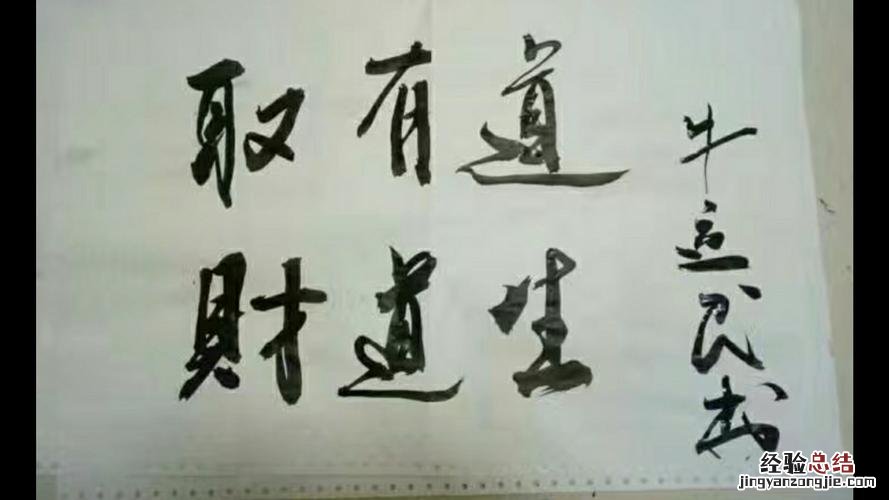 取有道
財道生
牛立民书
经验总结
jingyanzongjie.com